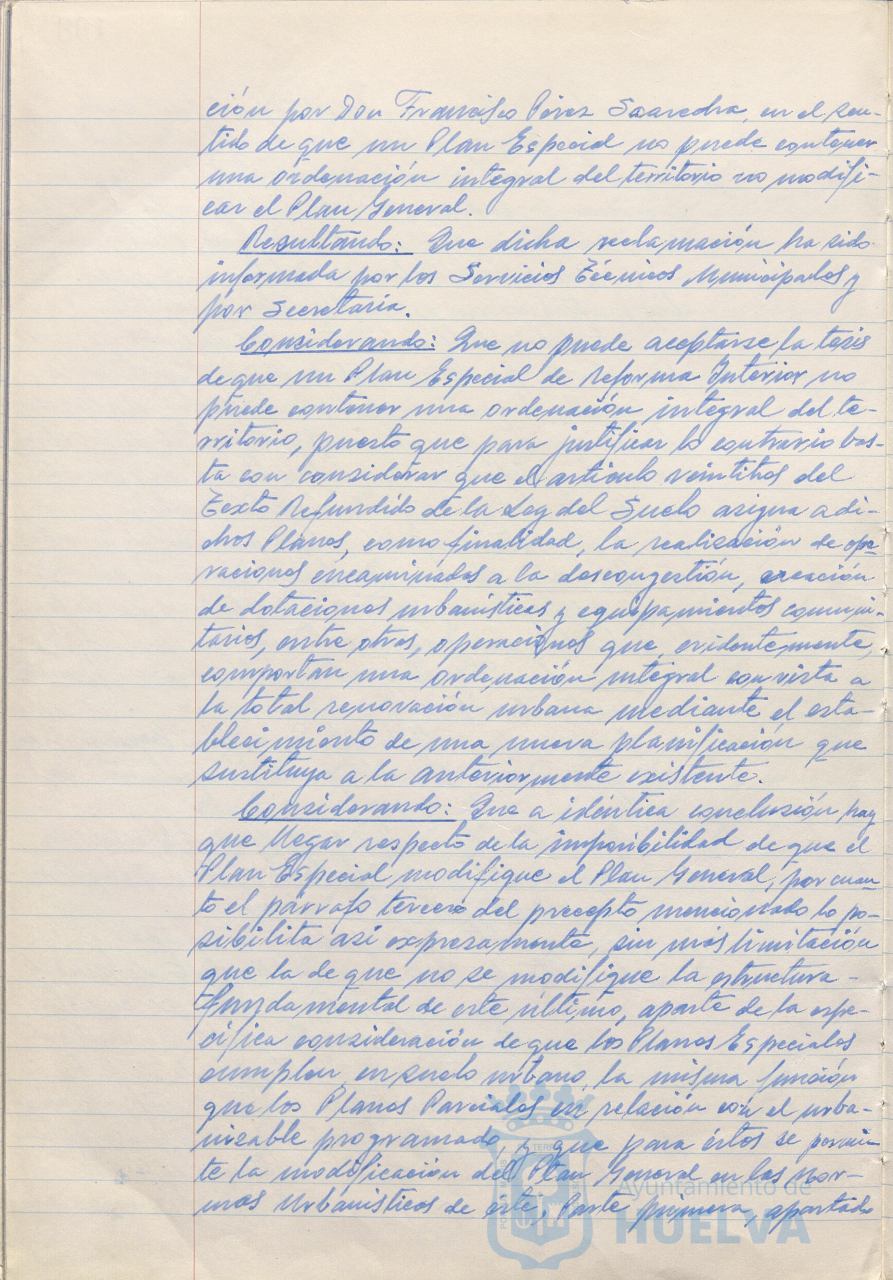 ción por Don Francisco Pérez Saavedra, en el sen-
tido de que un Plan Especial no puede contener
una ordenación integral del territorio no modifi-
car el Plan General.
Resultando: Que dicha reclamación ha sido
informada por los Servicios Técnicos Municipales y
por Secretaría.
Considerando: Que no puede aceptarse la tesis
de que un Plan Especial de Reforma Interior no
puede contener una ordenación integral del te-
rritorio, puesto que para justificar lo contrario bas-
ta con considerar que el artículo veintitres del
Texto Refundido de la Ley del Suelo asigna a di-
chos Planes, como finalidad, la realización de ope-
raciones encaminadas a la descongestión, creación
de dotaciones urbanísticas y equipamientos comuni-
tarios, entre otros, operaciones que, evidentemente,
comportan una ordenación integral con vista a
la total renovación urbana mediante el esta-
blecimiento de una nueva planificación que
sustituya a la anteriormente existente.
Considerando: Que a idéntica conclusión hay
que llegar respecto de la imposibilidad de que el
Plan Especial modifique el Plan General, por cuan-
to el párrafo tercero del precepto mencionado lo po-
sibilita así expresamente, sin más limitación
que la de que no se modifique la estructura
fundamental de este último, aparte de la espe-
cífica consideración de que los Planes Especiales
cumplen, en suelo urbano, la misma función
que los Planes Parciales en relación con el urba-
nizable programado, y que para éstos se permi-
te la modificación del Plan General en las Nor-
mas Urbanísticas de este, Parte primera, apartado
Ayuntamiento de
HUELVA